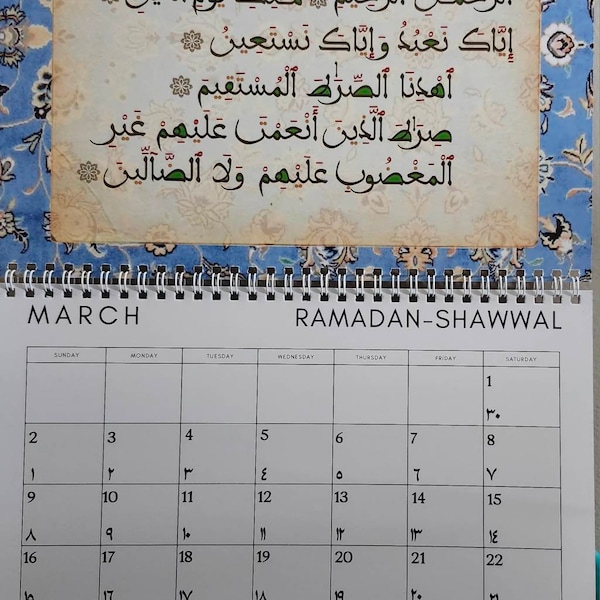 الرَّحْمَٰنِ الرَّحِيمِ مَلِكِ يَوْمِ الدِّينِ
إِيَّاكَ نَعْبُدُ وَإِيَّاكَ نَسْتَعِينُ
اَهْدِنَا اَلصِّرَٰطَ اَلْمُسْتَقِيمَ
صِرَٰطَ اَلَّذِينَ أَنْعَمْتَ عَلَيْهِمْ غَيْرِ
اِلْمَغْضُوبِ عَلَيْهِمْ وَلَا اَلضَّآلِّينَ
MARCH RAMADAN-SHAWWAL
SUNDAY MONDAY TUESDAY WEDNESDAY THURSDAY FRIDAY SATURDAY
1
٣٠
2 3 4 5 6 7 8
١ ٢ ٣ ٤ ٥ ٦ ٧
9 10 11 12 13 14 15
٨ ٩ ١٠ ١١ ١٢ ١٣ ١٤
16 17 18 19 20 21 22
١٥ ١٦ ١٧ ١٨ ١٩ ٢٠ ٢١